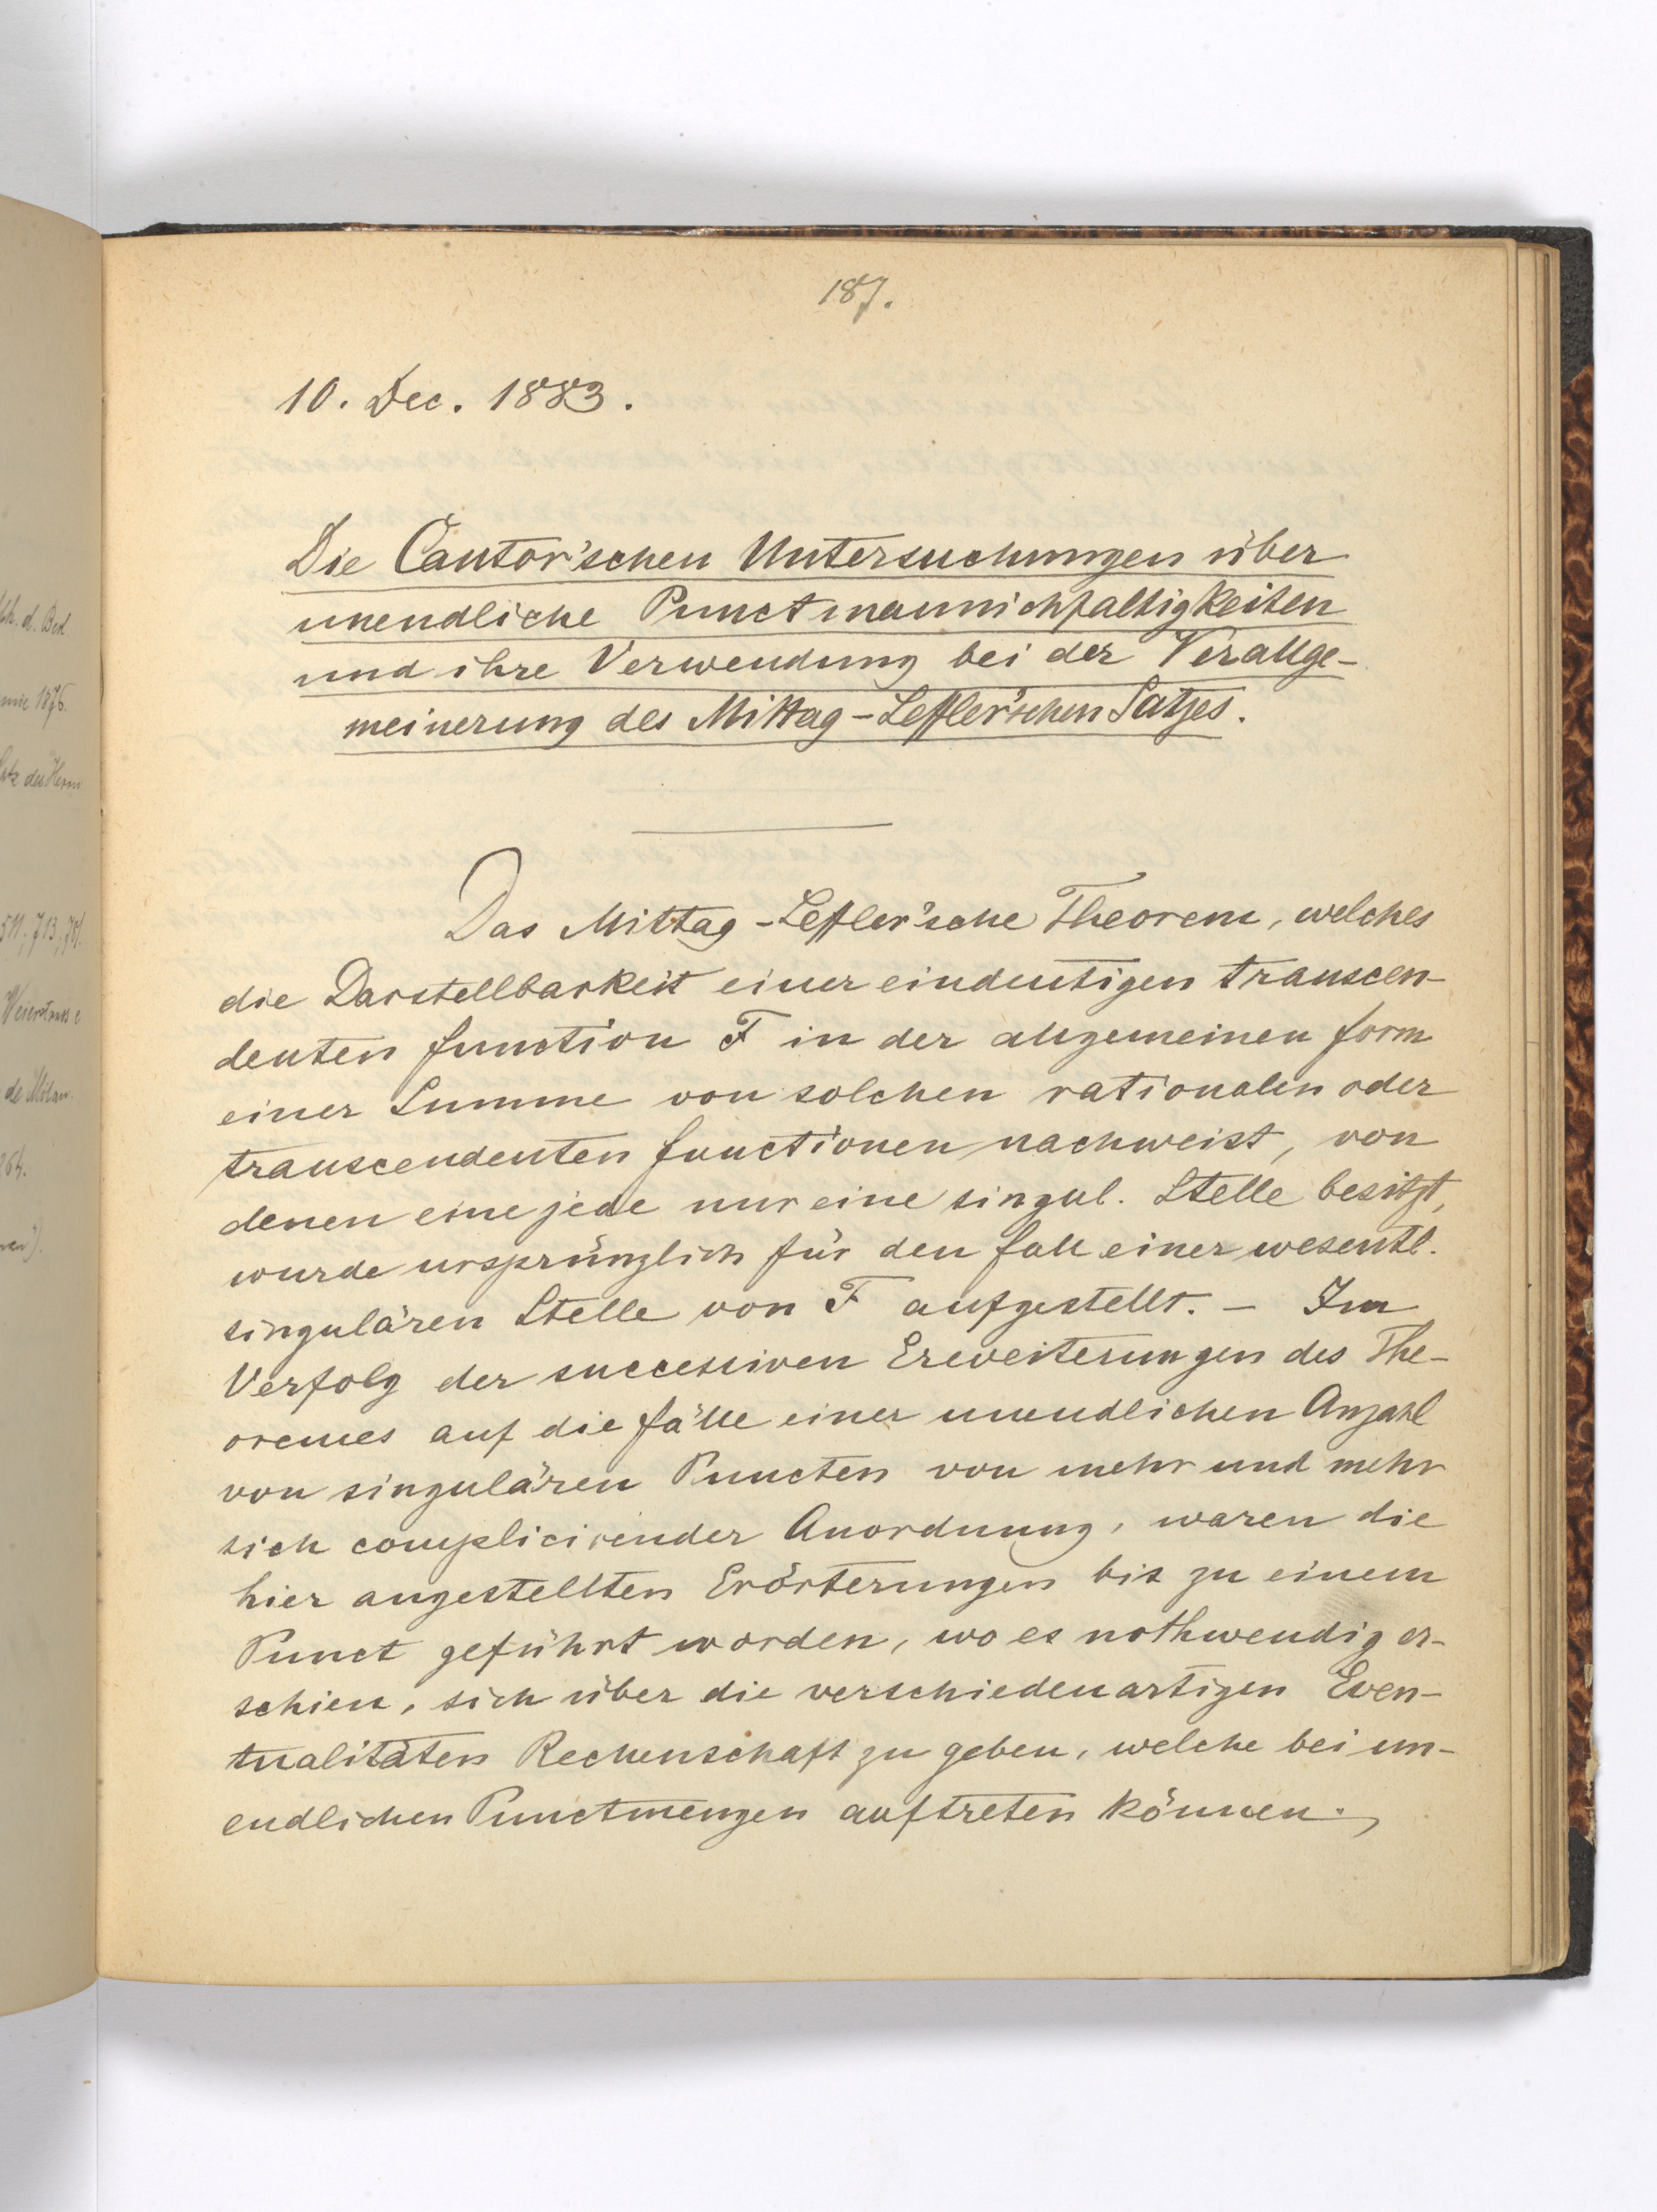 187.
10. Dec. 1883.
Die Cantor'schen Untersuchungen über
unendliche Punctmannichfaltigkeiten
und ihre Verwendung bei der Verallge-
meinerung des Mittag-Leffler'schen Satzes.
Das Mittag-Leffler'sche Theorem, welches
die Darstellbarkeit einer eindeutigen transcen-
denten Function F in der allgemeinen Form
einer Summe von solchen rationalen oder
transcendenten Functionen nachweist, von
denen eine jede nur eine singul. Stelle besitzt,
wurde ursprünglich für den Fall einer wesentl.
singulären Stelle von F aufgestellt. – Im
Verfolg der successiven Erweiterungen des The-
oremes auf die Fälle einer unendlichen Anzahl
von singulären Puncten von mehr und mehr
sich complicirender Anordnung, waren die
hier angestellten Erörterungen bis zu einem
Punct geführt worden, wo es nothwendig er-
schien, sich über die verschiedenartigen Even-
tualitäten Rechenschaft zu geben, welche bei un-
endlichen Punctmengen auftreten können.
d. Bed.
1876.
des Herrn
511; 713;
Weierstrass
de Milan.
264.